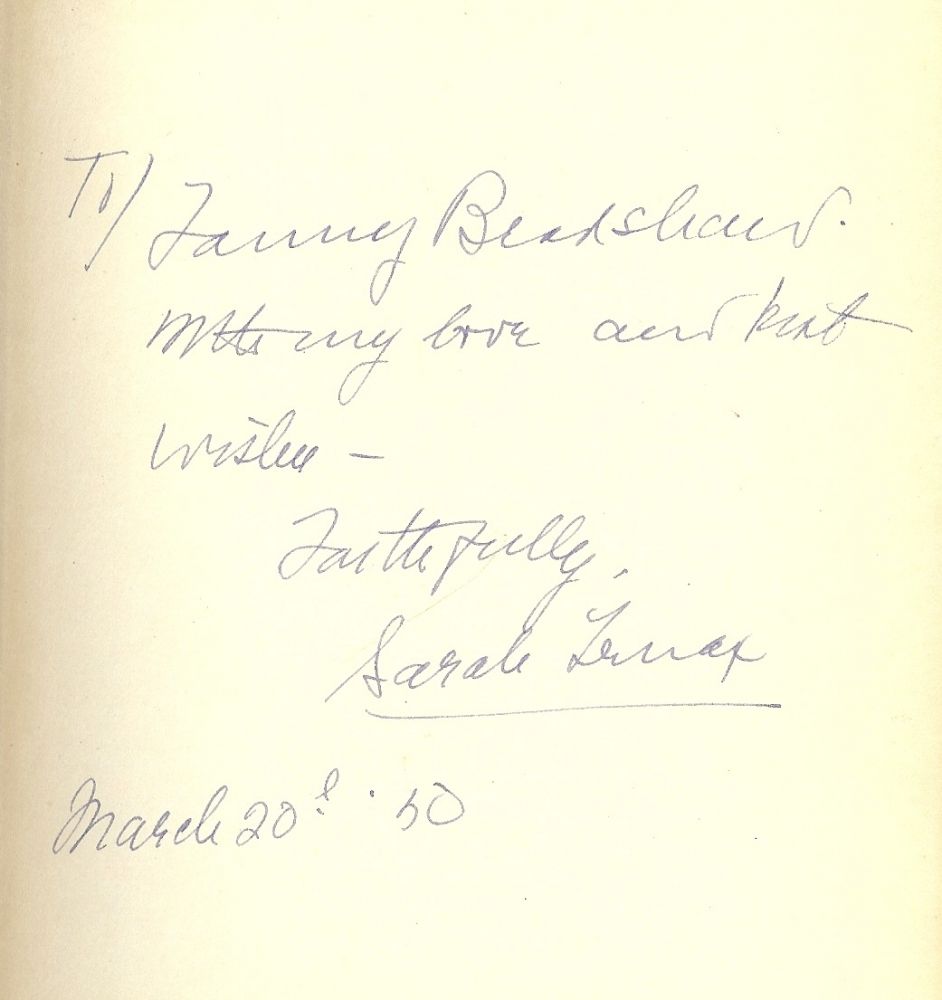 To/ Fanny Bradshaw.
With my love and best
wishes –
Faithfully,
Sarah Lenax
March 20th '50